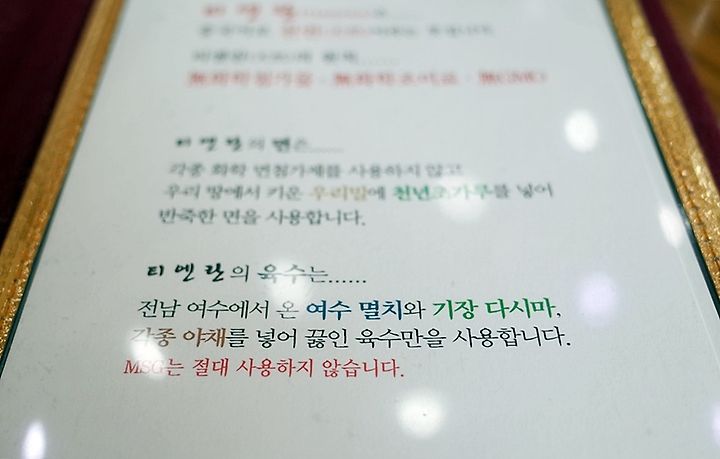 티엔란
無화학첨가물 · 無화학조미료 · 無GMO
티엔란의 면은......
각종 화학 면첨가제를 사용하지 않고
우리 땅에서 키운 우리밀에 천년초가루를 넣어
반죽한 면을 사용합니다.
티엔란의 육수는......
전남 여수에서 온 여수 멸치와 기장 다시마,
각종 야채를 넣어 끓인 육수만을 사용합니다.
MSG는 절대 사용하지 않습니다.